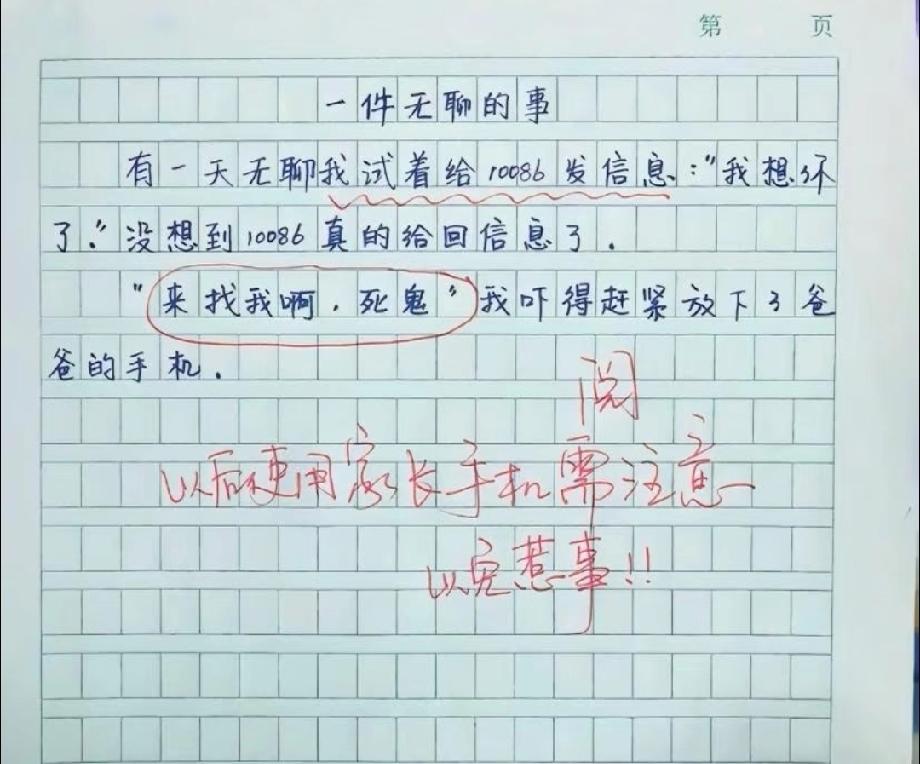 第 页
一件无聊的事
有一天无聊我试着给10086发信息:"我想你
了."没想到10086真的给回信息了.
"来找我啊,死鬼"我吓得赶紧放下了爸
爸的手机.
阅
以后使用家长手机需注意
以免惹事!!